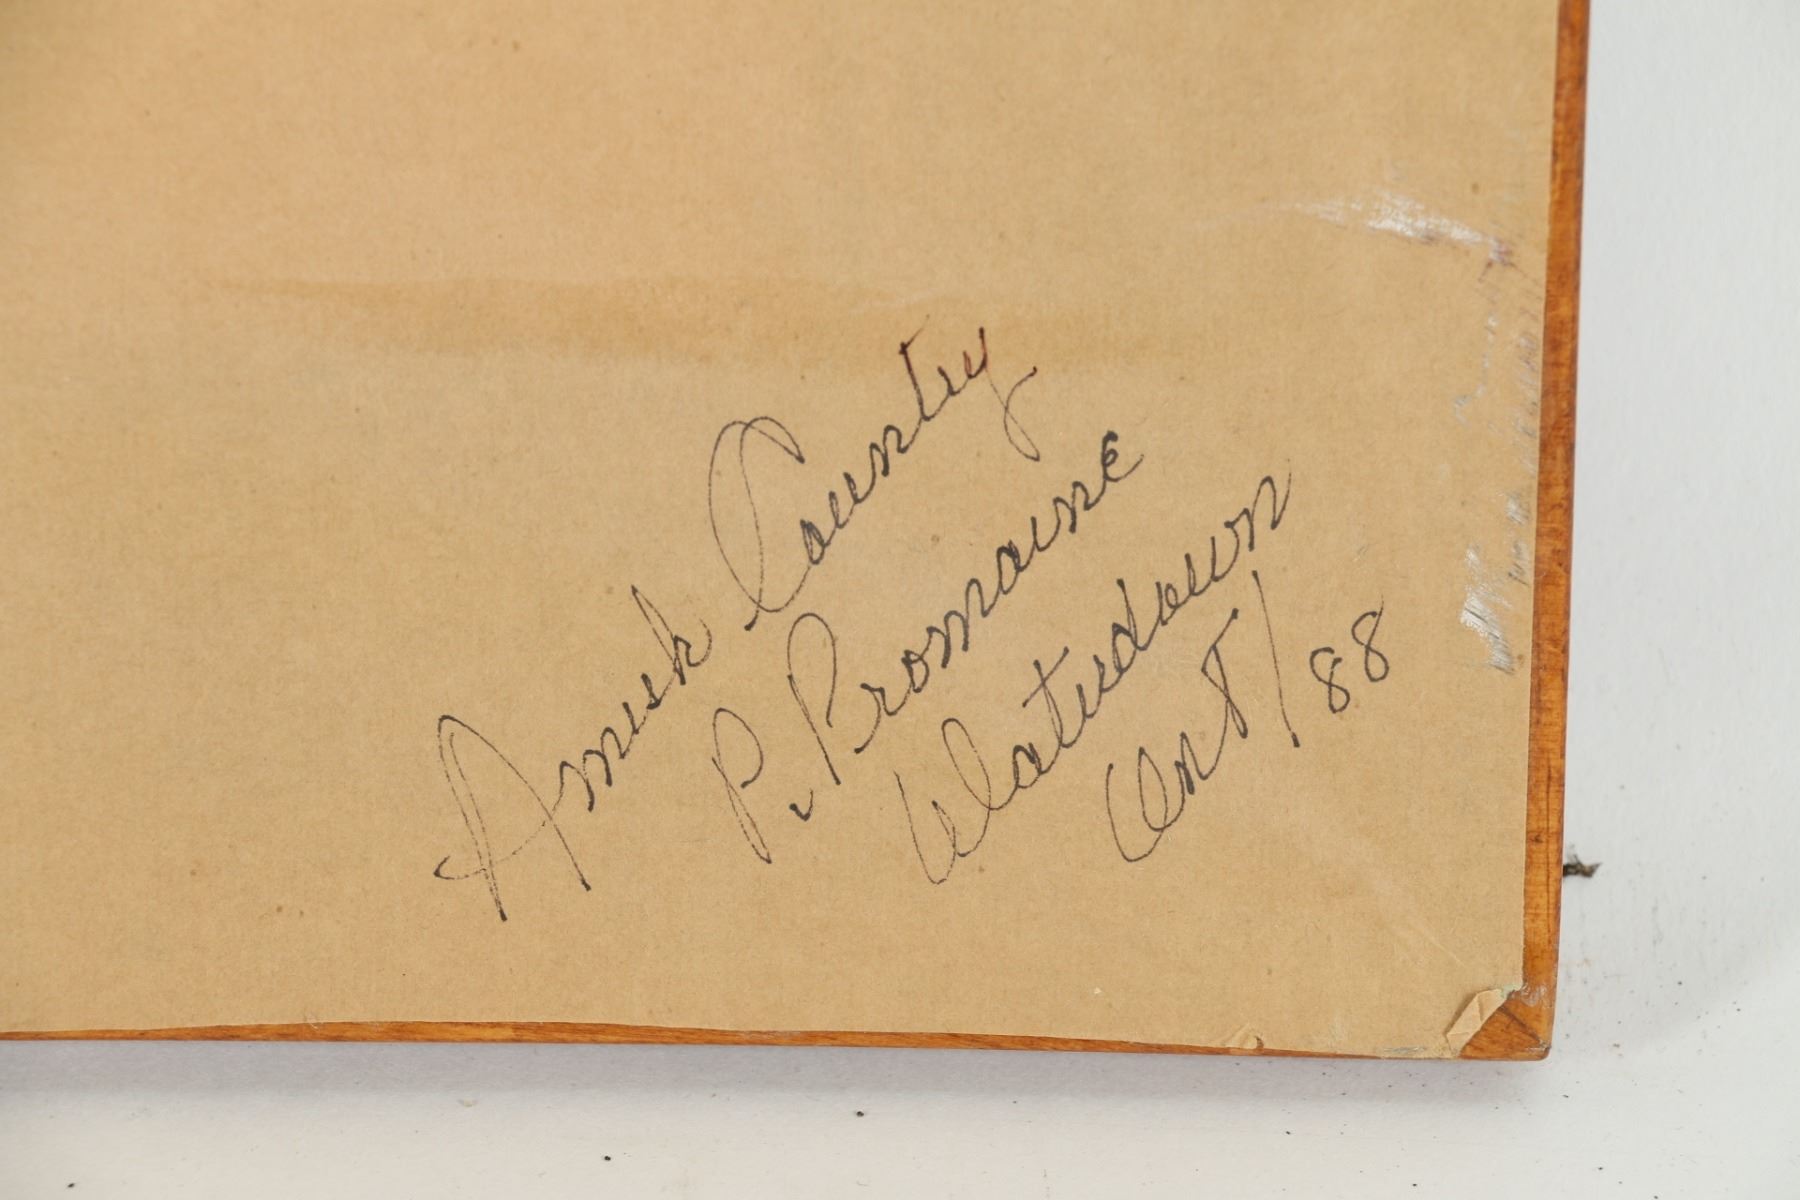 Amish County
P. Promaine
Waterdown
Ont / 88